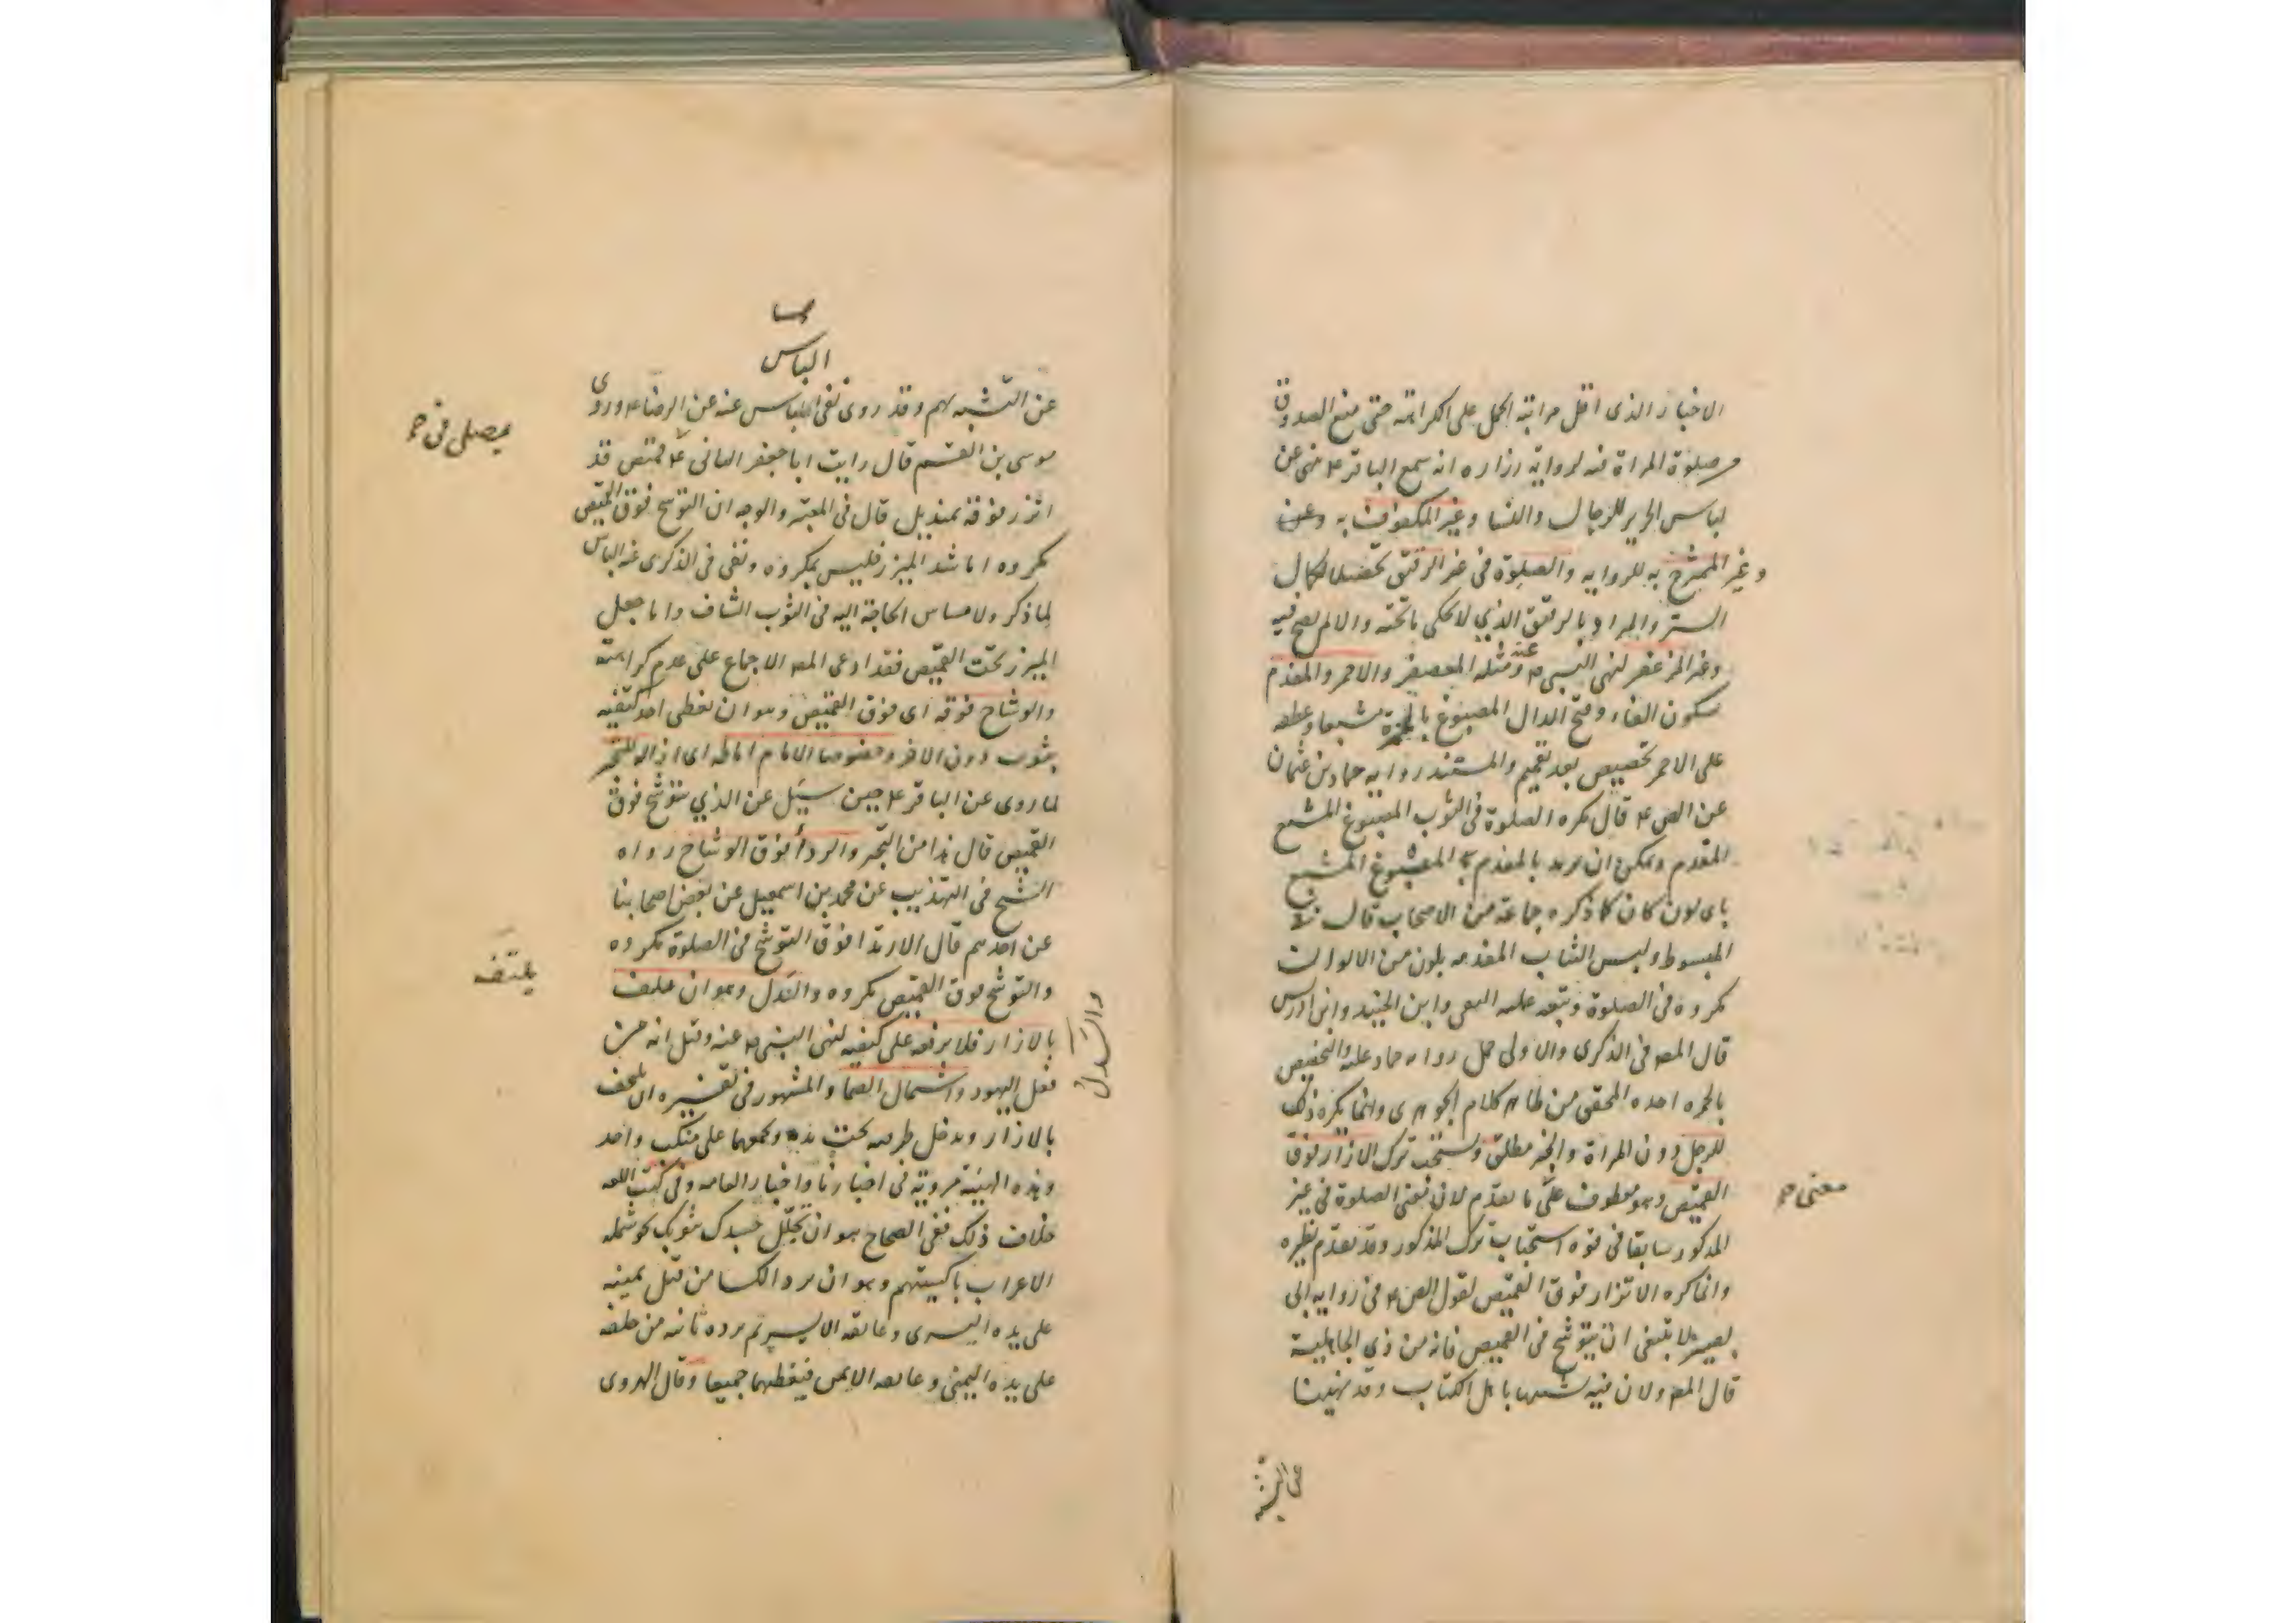 الاخبار الذى اقل مراتبه الحمل على الكراهة حتى منع الصدوق
من صلوة المراة فيه لرواية زراره انه سمع الباقر ع نهى عن
لباس الحرير للرجال والنسا وغير المكفوف به وعن
وغير الممتزج به للرواية والصلوة فى غير الرقيق تحصيلا لكمال
الستر والمراد بالرقيق الذي لا يحكى ما تحته والا لم يصح فيه
وغير المزعفر لنهى النبى ص عنه ومثله المعصفر والاحمر والمفدم
بسكون الفاء وفتح الدال المصبوغ بالحمرة مشبعا وعطفه
على الاحمر تخصيص بعد تعميم والمستند رواية حماد بن عثمان
عن الص ع قال يكره الصلوة فى الثوب المصبوغ المشبع
المفدم ويمكن ان يريد بالمفدم المصبوغ المشبع
باى لون كان كما ذكره جماعة من الاصحاب قال فى
المبسوط ولبس الثياب المفدمه بلون من الالوان
مكروه فى الصلوة وتبعه عليه وابن الجنيد وابن ادريس
قال المص فى الذكرى والاولى حمل رواية حماد عليه والتخصيص
بالحمره اخذه المحقق من ظاهر كلام الجوهرى وانما يكره ذلك
للرجل دون المراة والخبر مطلق ويستحب ترك الازار فوق
القميص وهو معطوف على ما تقدم لان معنى الصلوة فى غير
المذكور سابقا فى قوة استحباب ترك المذكور وقد تقدم نظيره
وانما كره الاتزار فوق القميص لقول الص ع فى رواية ابى
بصير لا ينبغى ان يتوشح فى القميص فانه من زي الجاهلية
قال المص ولان فيه تشبها باهل الكتاب وقد نهينا
معنى صح
عن التشبه
الباس
عن التشبه بهم وقد روى نفى الباس عنه عن الرضا ع وروى
موسى بن القسم قال رايت ابا جعفر الثانى ع قميص قد
اتزر فوقه بمنديل قال فى المعتبر والوجه ان التوشح فوق القميص
مكروه اما شد الميزر فليس بمكروه ونفى فى الذكرى عنه الباس
لما ذكر ولامساس الحاجة اليه فى الثوب الشاف واما جعل
الميزر تحت القميص فقد ادعى المص الاجماع على عدم كراهته
والوشاح فوقه اى فوق القميص وهو ان يغطى احد كتفيه
بثوب دون الاخر وخصوصا الامام اماطه اى ازاله للتجبر
لما روى عن الباقر ع حين سئل عن الذي يتوشح فوق
القميص قال هذا من التجبر والردأ فوق الوشاح رواه
الشيخ فى التهذيب عن محمد بن اسمعيل عن بعض اصحابنا
عن احدهم قال الارتدا فوق التوشح فى الصلوة مكروه
والتوشح فوق القميص مكروه والسدل وهو ان يلتف
بالازار فلا يرفعه على كتفيه لنهى النبى ص عنه وقيل انه من
فعل اليهود واشتمال الصما والمشهور فى تفسيره ان يلتحف
بالازار ويدخل طرفيه تحت يده ويجمعهما على منكب واحد
وهذه الهيئة مروية فى اخبارنا واخبار العامه وفى كتب اللغه
خلاف ذلك ففى الصحاح هو ان تجلل جسدك بثوبك نحو شمله
الاعراب باكسيتهم وهو ان يرد الكسا من قبل يمينه
على يده اليسرى وعاتقه الايسر ثم يرده ثانيه من خلفه
على يده اليمنى وعاتقه الايمن فيغطيهما جميعا وقال الهروى
يصلى فى صح
يلتف
والسدل